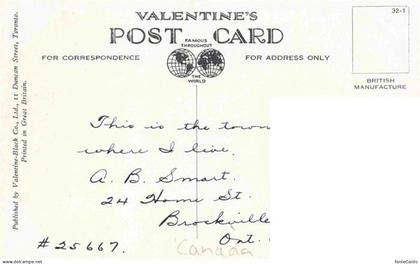 VALENTINE'S
POST CARD
FAMOUS
THROUGHOUT
THE
WORLD
FOR CORRESPONDENCE
FOR ADDRESS ONLY
32-1
BRITISH
MANUFACTURE
Published by Valentine-Black Co., Ltd., 11 Duncan Street, Toronto.
Printed in Great Britain.
This is the town
where I live.
A. B. Smart.
24 Home St.
Brockville
Ont.
#25667.
Canada
delcampe.net
fonteCards